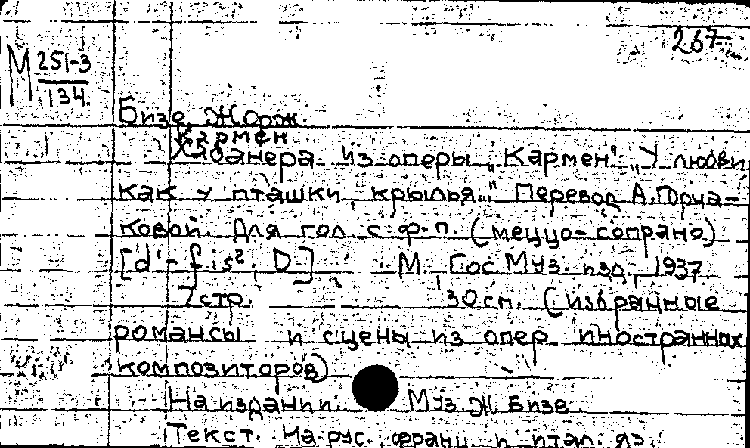 267
М 251-3
134.
Бизе, Жорж.
Кармен
Хабанера из оперы „Кармен“ „У любви
как у пташки, крылья..." Перевод А. Горча-
ковой. Для гол. с ф-п. (меццо-сопрано)
[d'-fis², D.] М. Гос Муз. изд, 1937
7 стр. 30 см. (избранные
романсы и сцены из опер иностранных
композиторов)
На издании. Муз Ж. Бизе.
Текст. На рус., франц. и итал. яз.